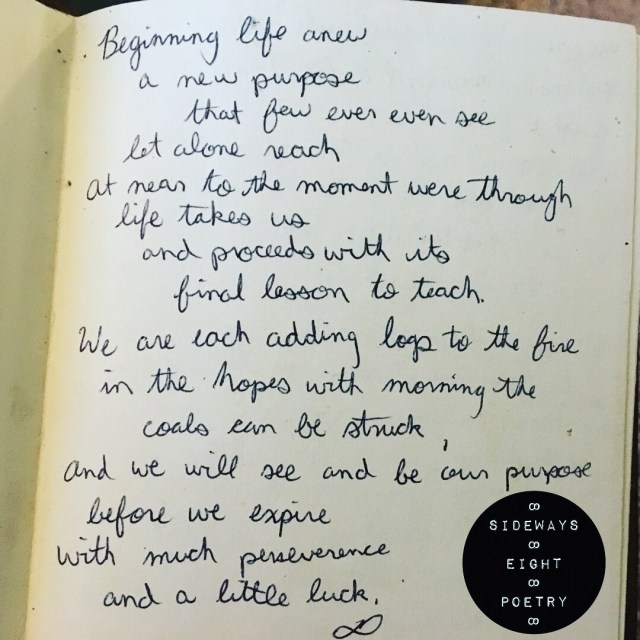 Beginning life anew
a new purpose
that few ever even see
let alone reach
at near to the moment were through
life takes us
and proceeds with its
final lesson to teach.
We are each adding logs to the fire
in the hopes with morning the
coals can be struck,
and we will see and be our purpose
before we expire
with much perseverence
and a little luck.
∞
8
SIDEWAYS
8
EIGHT
8
POETRY
8